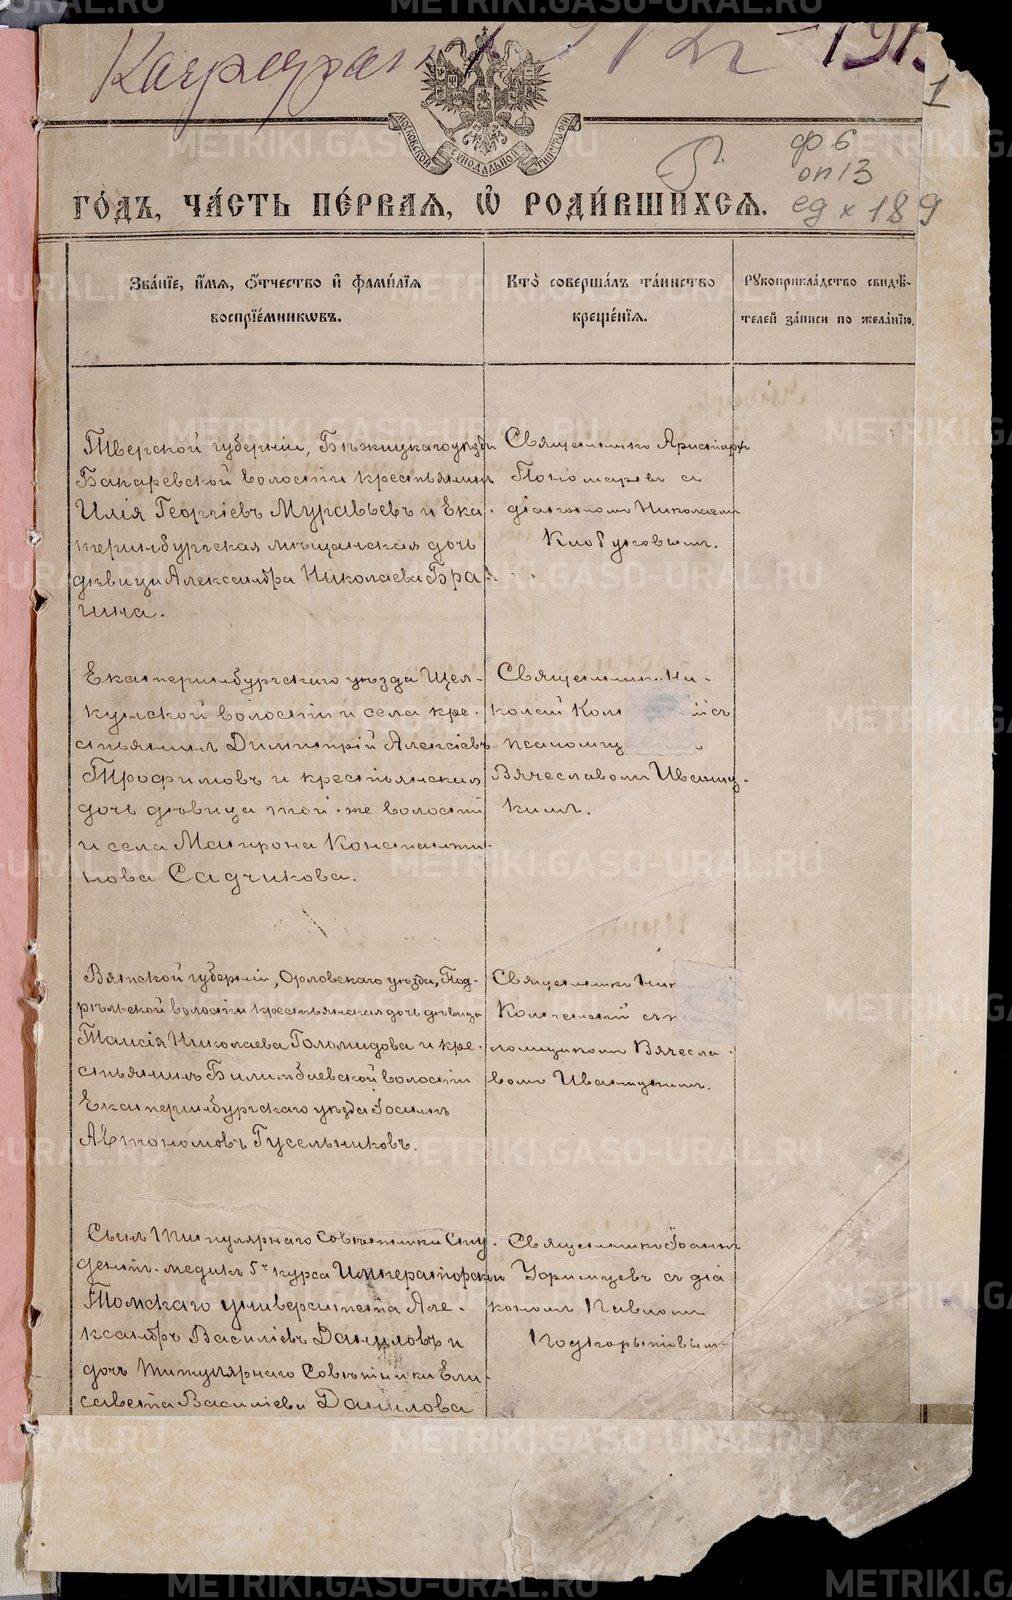 1
МОСКОВСКОЙ СѴНОДАЛЬНОЙ ТИПОГРАФІИ
ф 6
оп 13
ед х 189
ГО́ДЪ, ЧА́СТЬ ПЕ́РВАѦ, Ѽ РОДИ́ВШИХСѦ.
Зва́нїе, и́мѧ, ѻ́тчество и фами́лїѧ
воспрїе́мникѡвъ.
Кто̀ соверша́лъ та́инство
креще́нїѧ.
Рꙋкоприкла́дство свидѣ́-
телей за́писи по жела́нїю.
Тверской губерніи, Бѣжицкаго уѣзда
волости крестьянинъ
Илія Георгіевъ Муравьевъ и Ека-
теринбургская мѣщанская дочь
дѣвица Александра Николаева Бра-
гина.
Священникъ Аристархъ
Пономаревъ съ
діакономъ Николаемъ
Клобуковымъ.
Екатеринбургскаго уѣзда Щел-
кунской волости и села кре-
стьянинъ Димитрій Алексіевъ
Трофимовъ и крестьянская
дочь дѣвица той-же волости
и села Матрона Константи-
нова Садчикова.
Священникъ Ни-
колай
псаломщ
Вячеславомъ Иваниц-
кимъ.
Вятской губерніи, Орловскаго уѣзда, Под-
рѣльской волости крестьянская дочь дѣвица
Таисія Николаева Голомидова и кре-
стьянинъ Билимбаевской волости
Екатеринбургскаго уѣзда Іосифъ
Автономовъ Гусельниковъ.
Священникъ Ник
съ
ломщикомъ Вячесла-
вомъ Иваницкимъ.
Сынъ Титулярнаго Совѣтника Сту-
дентъ-медикъ 5го курса Императорскаго
Томскаго университета Але-
ксандръ Василіевъ Даниловъ и
дочь Титулярнаго Совѣтника Ели-
савета Василіева Данилова
Священникъ Іоаннъ
Уфимцевъ съ діа
кономъ Павломъ
Подкорытовымъ.
METRIKI.GASO-URAL.RU